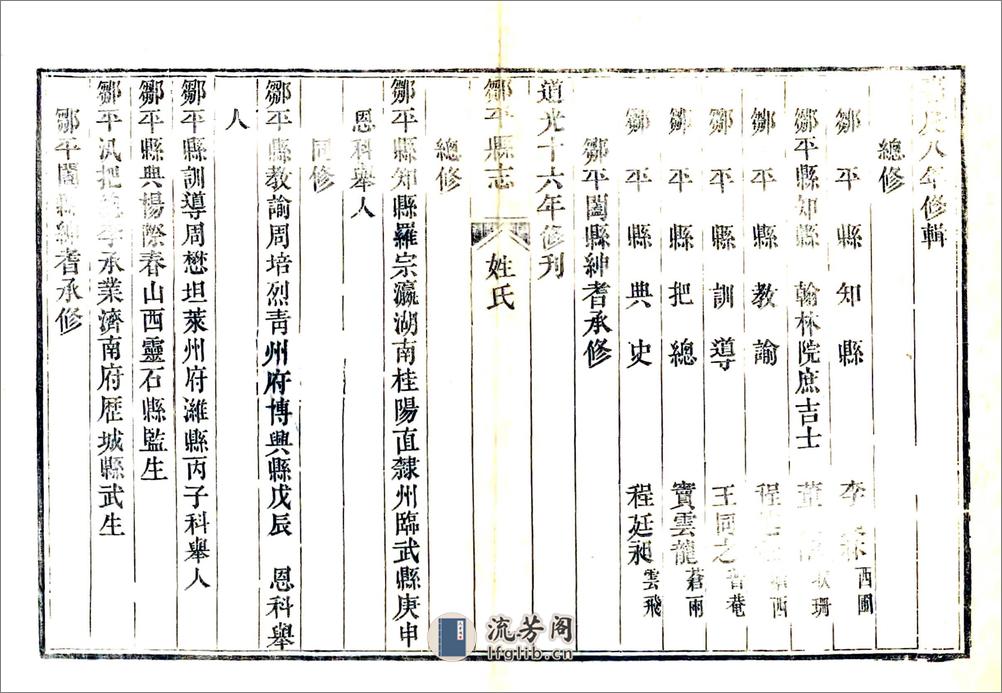 八年修輯
總修
鄒平縣知縣 李 西圃
鄒平縣知縣 翰林院庶吉士 董 珊
鄒平縣教諭 程 西
鄒平縣訓導 王同之 菴
鄒平縣把總 竇雲龍 蒼雨
鄒平縣典史 程廷昶 雲飛
鄒平闔縣紳耆承修
道光十六年修刊
鄒平縣志 姓氏
總修
鄒平縣知縣羅宗瀛湖南桂陽直隸州臨武縣庚申
恩科舉人
同修
鄒平縣教諭周培烈青州府博興縣戊辰 恩科舉
人
鄒平縣訓導周懋坦萊州府濰縣丙子科舉人
鄒平縣典楊際春山西靈石縣監生
鄒平汛把總李承業濟南府歷城縣武生
鄒平闔縣紳耆承修
流芳阁
lfglib.cn